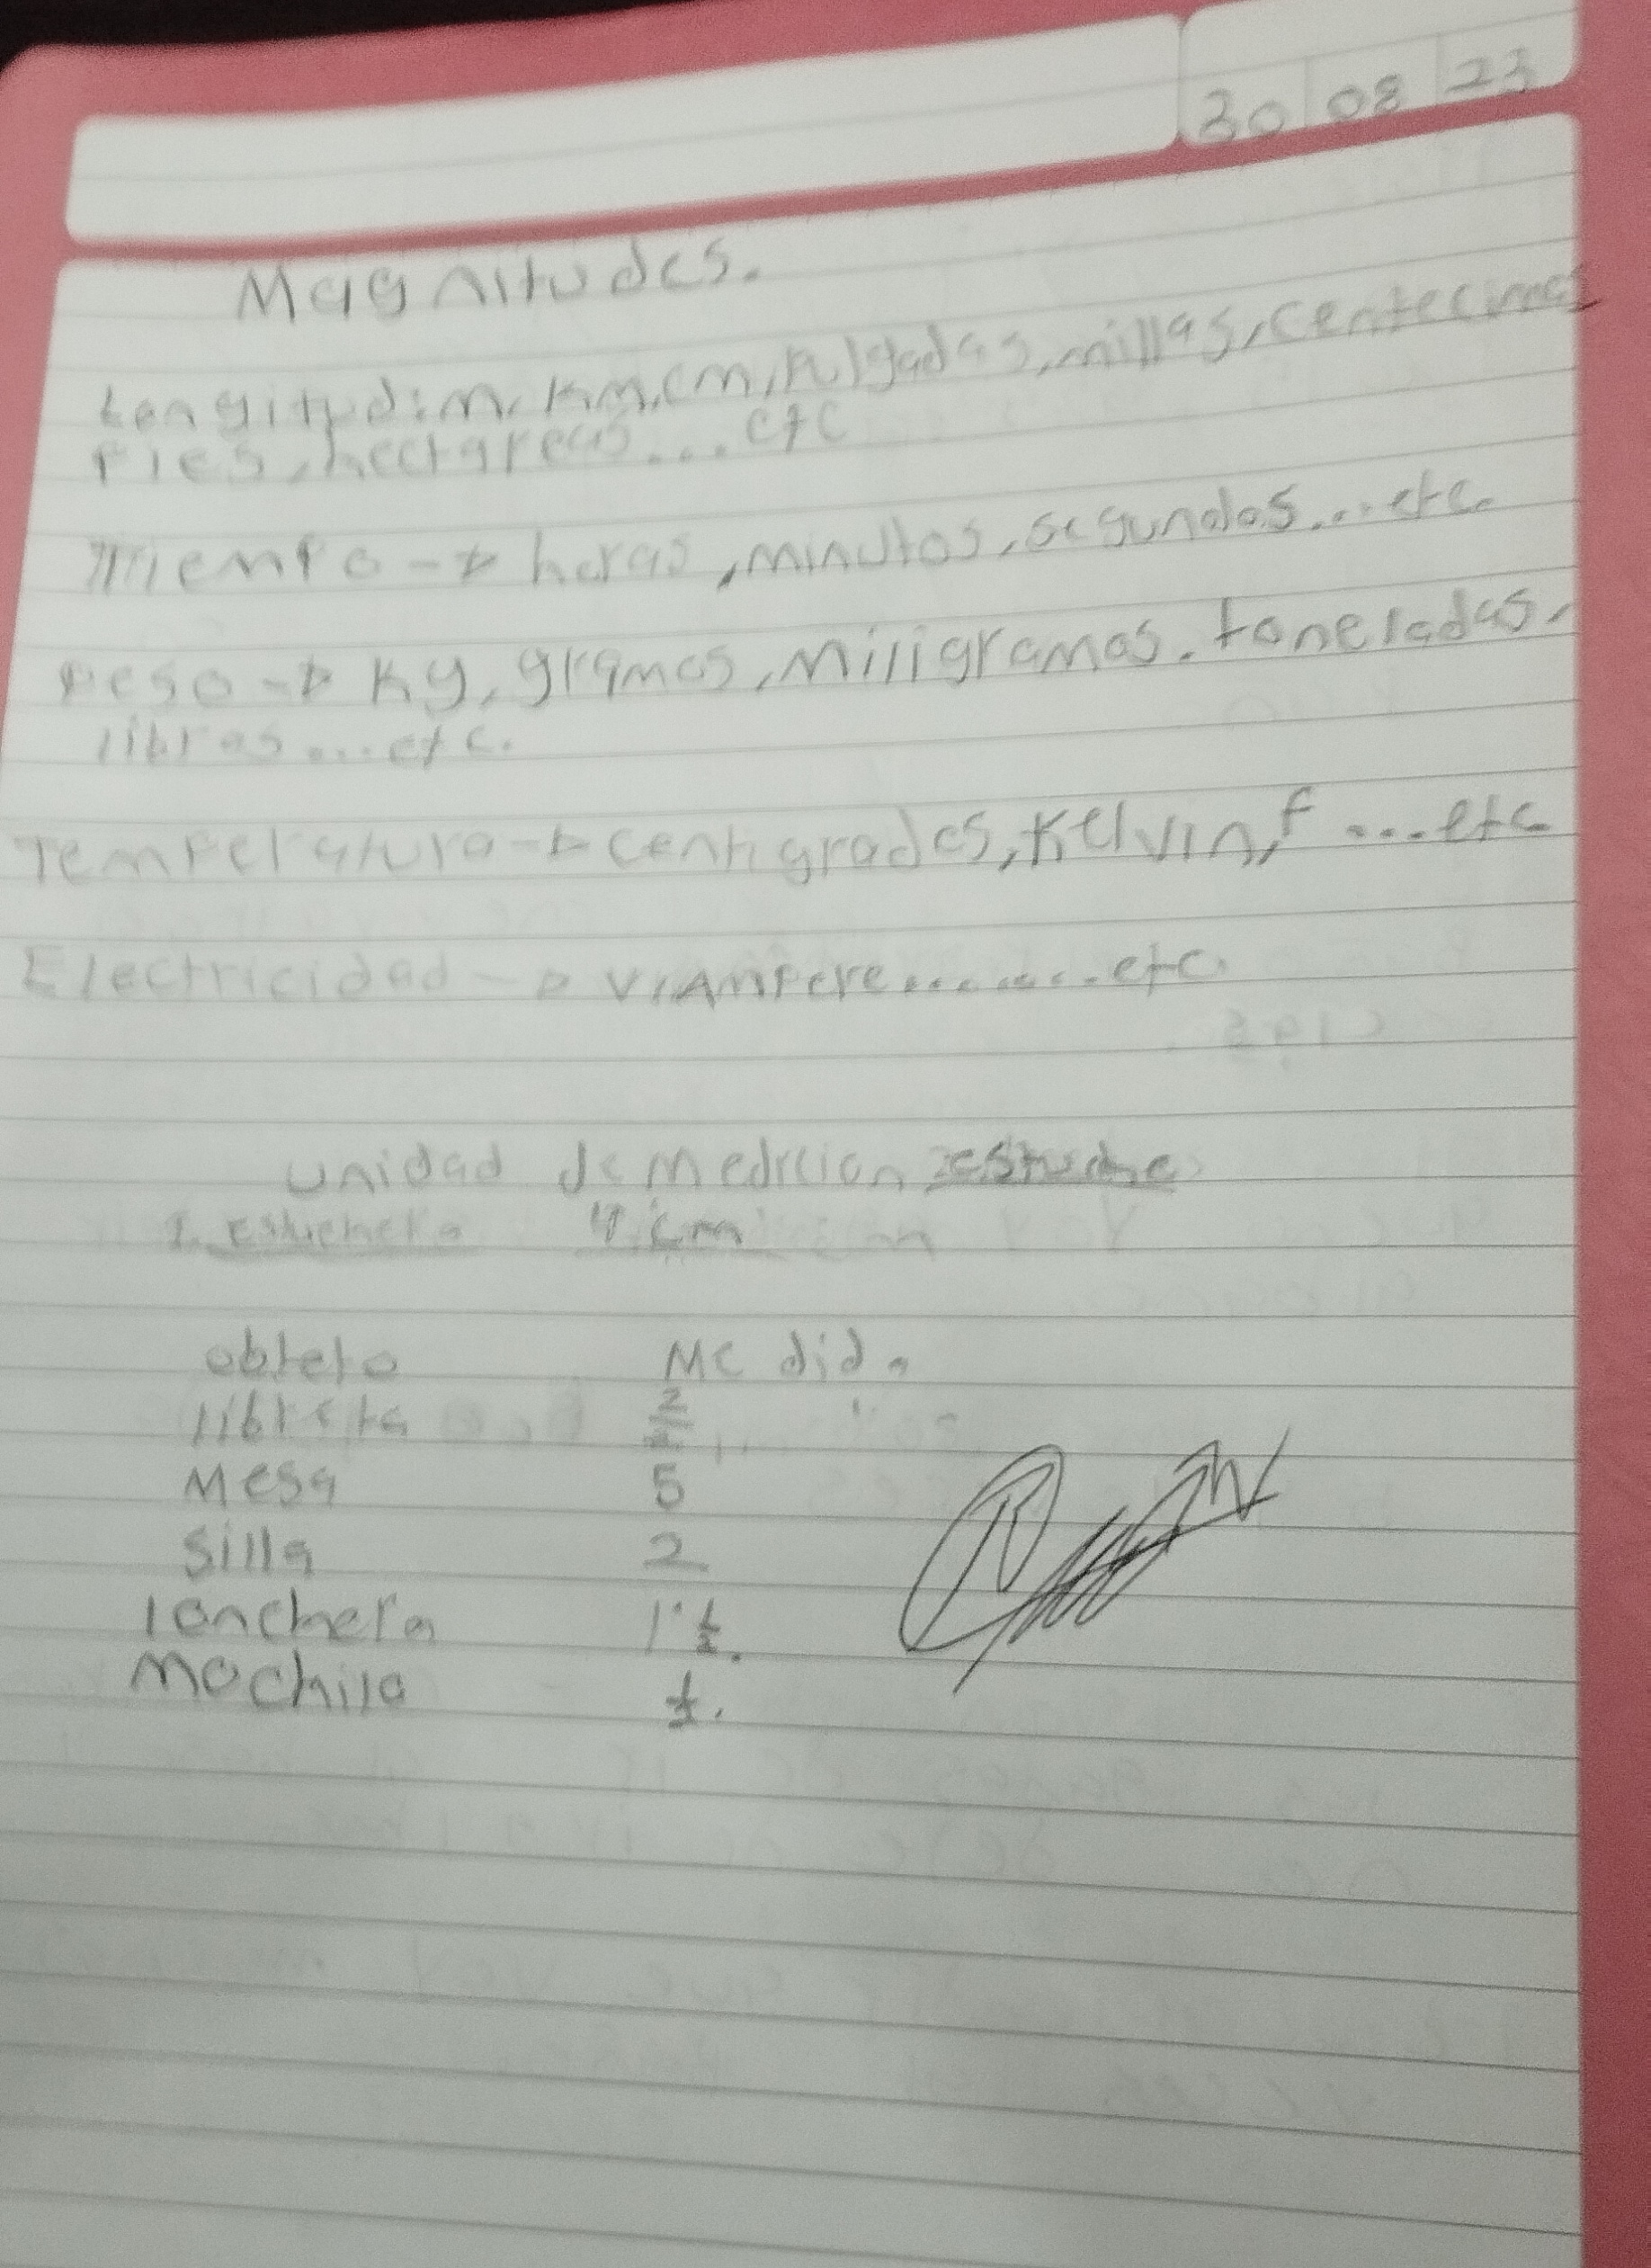 30 08 23
Magnitudes.
Longitud: m, km, cm, Pulgadas, millas, centecimas
Pies, hectareas... etc
Tiempo -> horas, minutos, segundos... etc.
Peso -> Kg, gramos, Miligramos. toneladas,
libras... etc.
Temperatura -> centigrados, Kelvin, F ...etc
Electricidad -> V, Ampere........etc.
unidad de medicion estuche
1. estuchera cm
objeto Medida
libreta
Mesa 5
Silla 2
lonchera 1 1/2.
Mochila